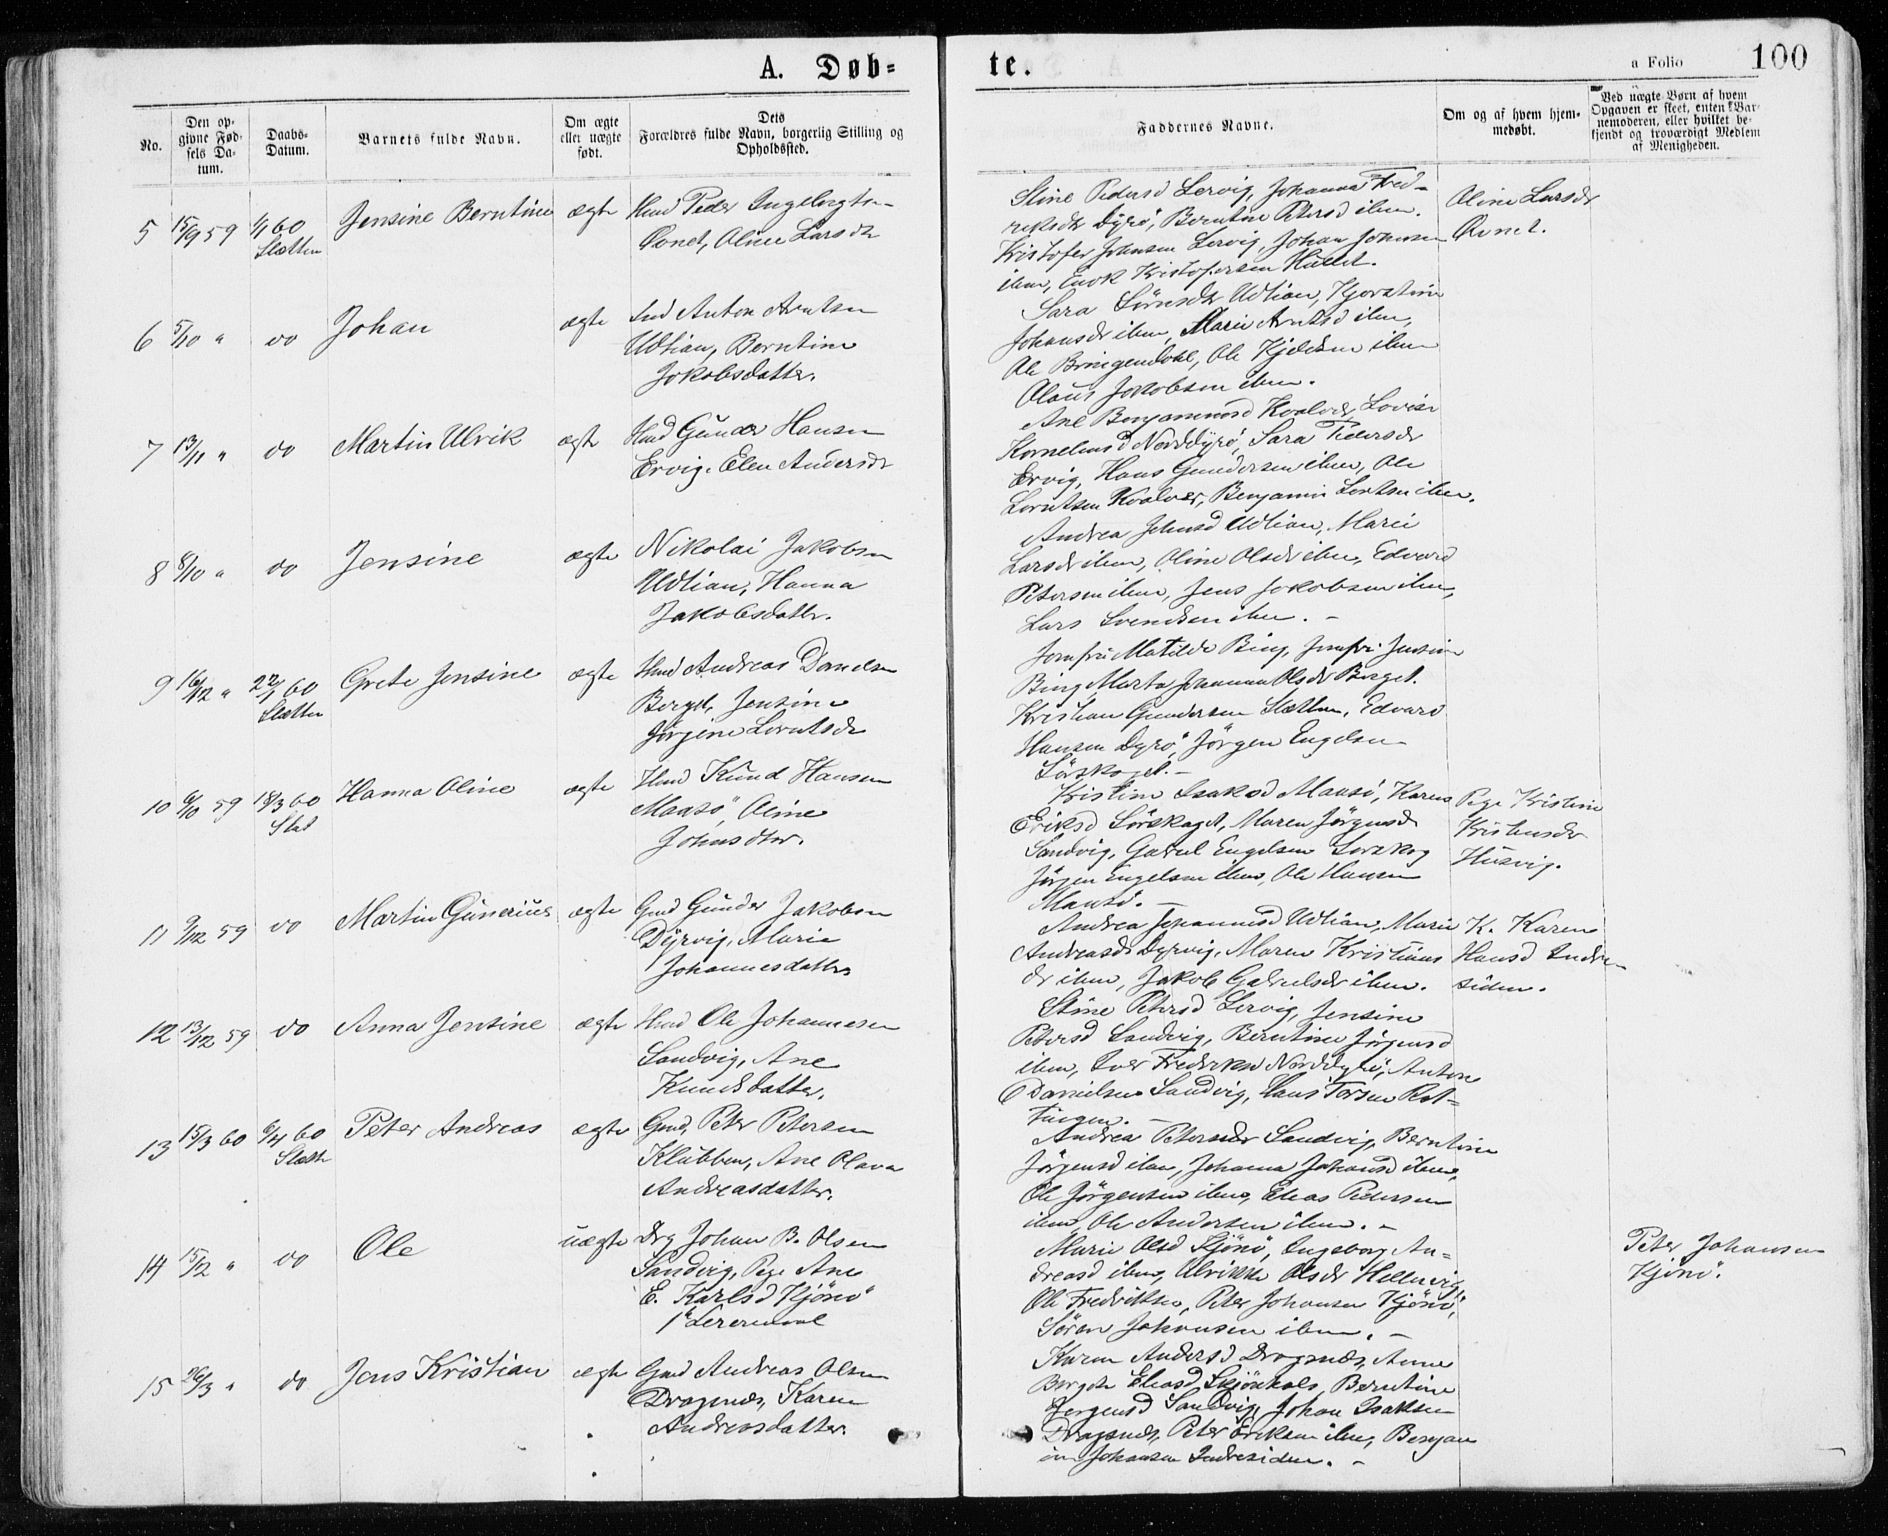 A. Døb-
te.
a Folio 100
No.
Den op-
givne Fød-
sels Da-
tum.
Daabs-
Datum.
Barnets fulde Navn.
Om ægte
eller uægte
født.
Dets
Forældres fulde Navn, borgerlig Stilling og
Opholdssted.
Faddernes Navne.
Om og af hvem hjem-
medøbt.
Ved uægte Børn af hvem
Opgaven er skeet, enten Bar-
nemoderen, eller hvilket be-
kjendt og troværdigt Medlem
af Menigheden.
5 15/9 59 1/1 60 Jensine Berntine ægte Hmd Peder
Slætten
Aline Larsdr
Stine Pedersd Lervig, Johanna Fred-
riksdr Dyrö, Berntine Petersd ibm.
Kristofer Johnsen Lervig, Johan Johnsen
ibm, Enok Kristofersen
Aline Larsdr
6 5/10 " do Johan ægte Ind Anton Arntsen
Udtian, Berntine
Jokobsdatter.
Sara Sörnsdr Udtian,
Johansdr ibm, Marie Arntsd ibm,
Ole Bringendahl, Ole ibm
Olaus Jakobsen ibm.
7 13/11 " do Martin Ulrik ægte Hmd Gunder Hansen
Ervig, Elen Andersdr
Ane Lovise
Kornelius d Norddyrö, Sara Pedersdr
Ervig, Hans Gundersen ibm, Ole
Lorntsen Kvalvær, Benjamin Lorntsen ibm.
8 8/10 " do Jensine ægte Nikolai Jakobsen
Udtian, Hanna
Jakobsdatter.
Andrea Johnsd Udtian, Marie
Larsdr ibm, Oline Olsdr ibm, Edvard
Petersen ibm, Jens Jokobsen ibm,
Lars Svendsen ibm. -
9 16/12 " 22/1 60 Grete Jensine ægte Hmd Andreas Danelsen
Slætten
Berget, Jensine
Jörgine Lorntsdr
Jomfru Matilde Bing, Jomfru Jensine
Bing, Marta Johanna Olsdr Berget.
Kristian Gundersen Slætten, Edvard
Hansen Dyrö, Jörgen Engelsen
Sörskaget. -
10 6/10 59 18/3 60 Hanna Oline ægte Hmd Knud Hansen
Slet
Maasö, Oline
Johnsdtr.
Kristine Isaksd Maasö, Karen
Eriksd Sörskaget, Maren Jörgensdr
Sandvig, Gabriel Engelsen Sorskag
Jörgen Engelsen ibm, Ole Hansen
Maasö. -
Pige Kristine
Kristensdr
Husvig.
11 9/12 59 do Martin Gunerius ægte Gmd Gunder Jakobsen
Dyrvig, Marie
Johannesdatter
Andrea Johannesd Udtian, Marie
Andreasdr Dyrvig, Maren Kristians
dr ibm, Jakob Gabrielsdr ibm.
K. Karen
Hansd Indre-
siden.
12 13/12 59 do Anna Jensine ægte Hmd Ole Johannesen
Sandvig, Ane
Knudsdatter.
Stine Petersd Lervig, Jensine
Petersd Sandvig, Berntine Jörgensd
ibm, Iver Fredriksen Norddyrö, Anton
Danielsen Sandvig, Hans Torsen Rot-
tingen. -
13 15/3 60 6/4 60 Peter Andreas ægte Gmd, Peter Petersen
Slætte
Klubben, Ane Olava
Andreasdatter.
Andrea Petersdr Sandvig, Berntine
Jörgensd ibm, Johanna Johansd ibm,
Ole Jörgensen ibm, Elias Pedersen
ibm, Ole Andersen ibm. -
14 15/2 " do Ole uægte Drg Johan B. Olsen
Sandvig, Pige Ane
E. Karlsd Kjönö
1ste Leiermaal
Marie Olsd Kjönö, Ingeborg An-
dreasd ibm, Ulrikke Olsdr Hellervig
Ole Fredriksen, Peter Johansen Kjönö,
Sören Johansen ibm. -
Peter Johansen
Kjönö.
15 26/3 " do Jens Kristian ægte Gmd Andreas Olsen
Dragsnæs, Karen
Andreasdatter.
Karen Andersd Dragsnæs, Anne
Bergete Eliasd Skjönhals, Berntine
Jörgensd Sandvig, Johan Isaksen
Dragsnæs, Peter Eriksen ibm, Benjam
in Johansen Indresiden. -